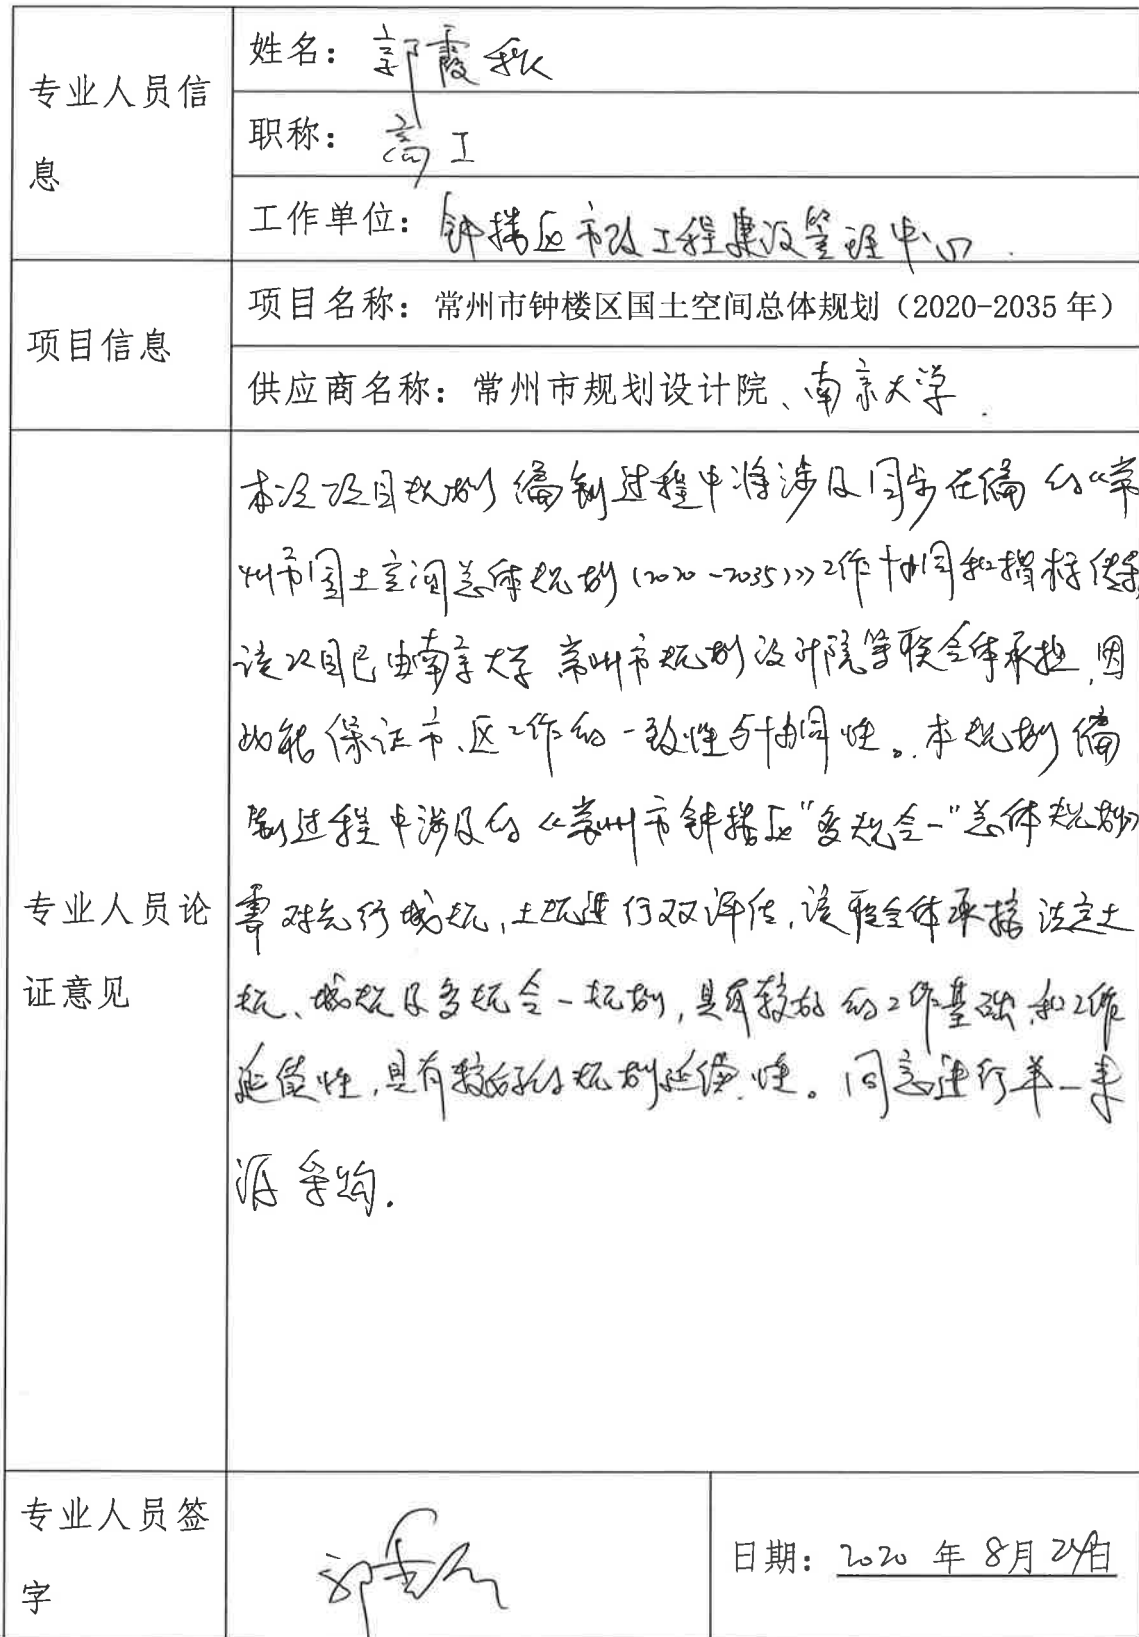 专业人员信息
姓名：郭霞秋
职称：高工
工作单位：钟楼区市政工程建设管理中心.
项目信息
项目名称：常州市钟楼区国土空间总体规划（2020-2035年）
供应商名称：常州市规划设计院、南京大学.
专业人员论证意见
本次项目规划编制过程中将涉及同步在编的《常
州市国土空间总体规划(2020-2035)》工作协同和指标传导
该项目已由南京大学 常州市规划设计院等联合体承担,因
此能保证市、区工作的一致性与协同性。本规划编
制过程中涉及的《常州市钟楼区"多规合一"总体规划》
需对先行城规,土规进行双评估,该联合体承接法定土
规、城规及多规合一规划,具有较好的工作基础和工作
延续性,具有较好的规划延续性。同意进行单一来
源采购.
专业人员签字
日期：2020年8月24日